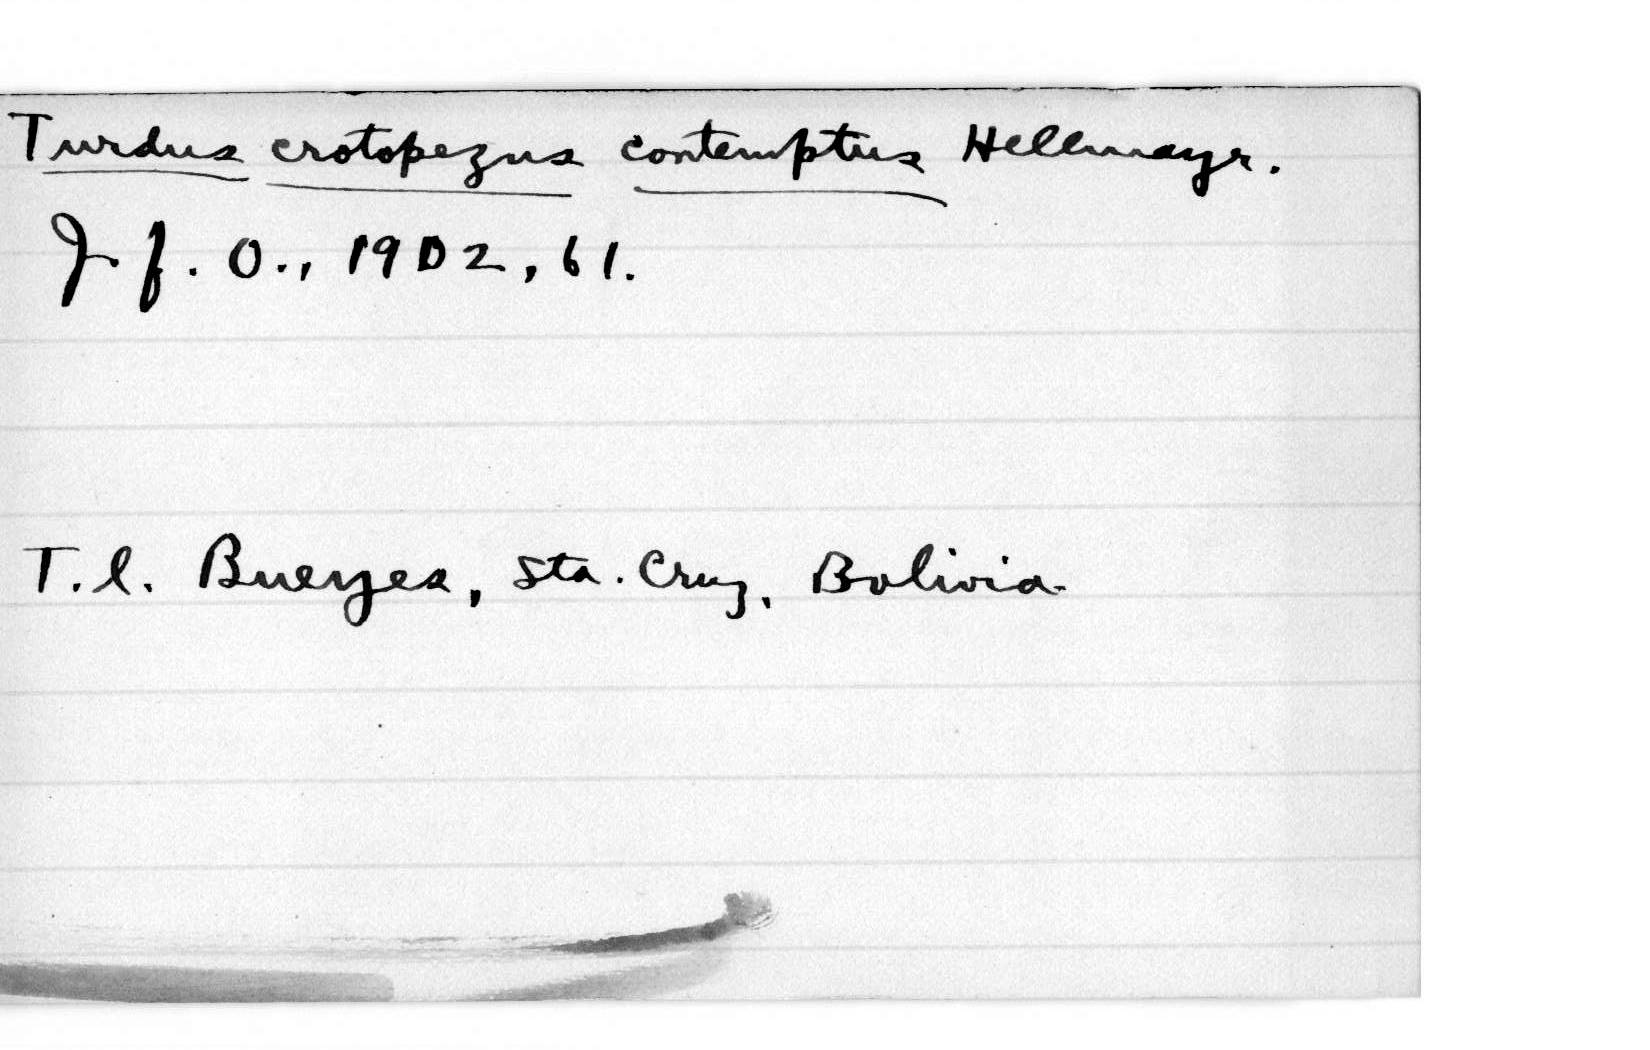 Turdus crotopezus contemptus Hellmayr.
J. f. O., 1902, 61.
T.l. Bueyes, Sta. Cruz, Bolivia